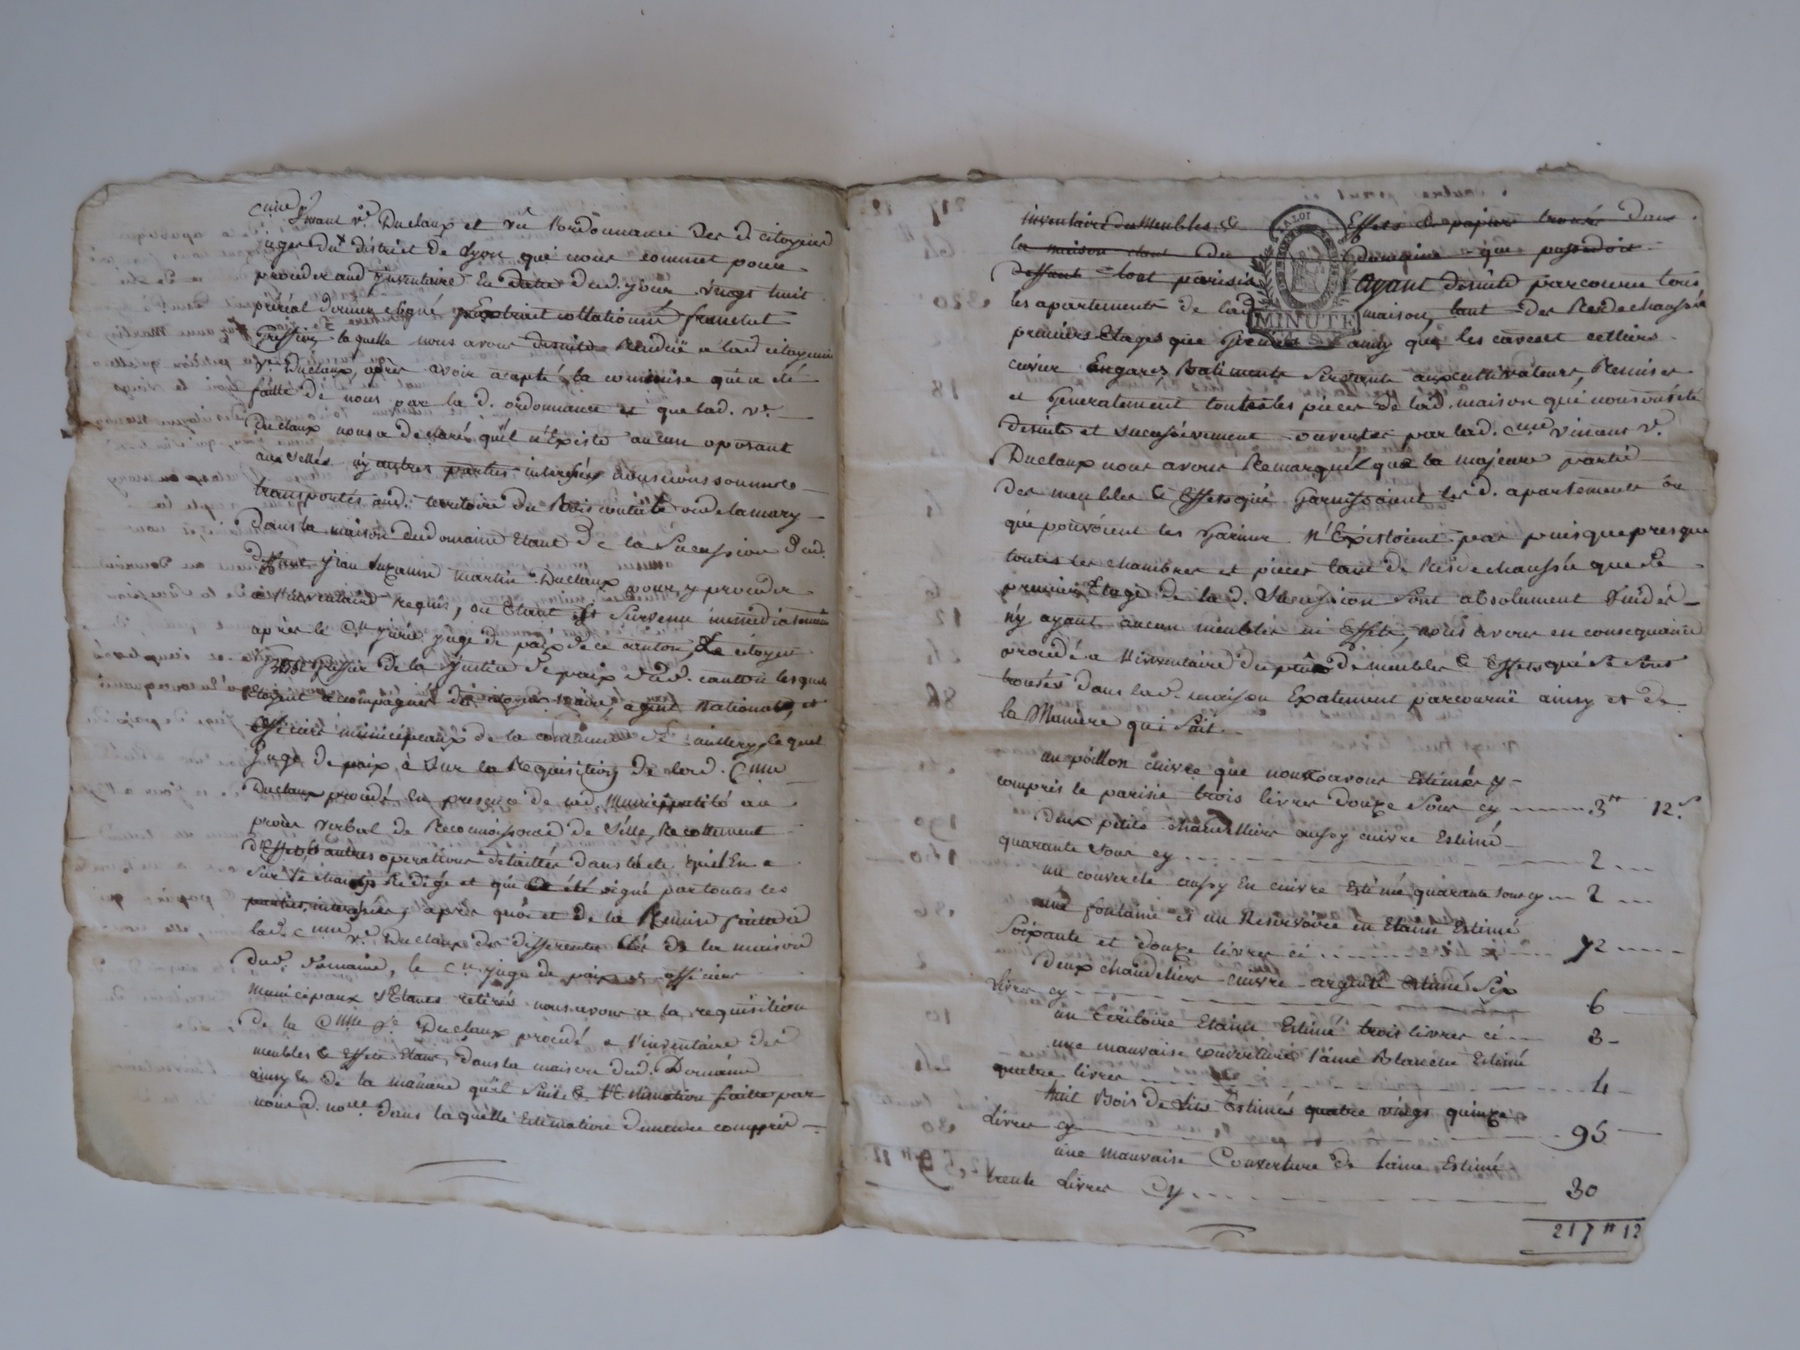 Vinant ve. Duclaux et vu l'ordonnance des d. citoyens
juges du district de Lyon qui nous commet pour
proceder aud. inventaire en datte dud. jour vingt huit
préréal dernier signé
laquelle nous avons ensuite Rendüe a lad. citoyenne
ve. Duclaux, après avoir acapté la commise qui a été
faitte de nous par la d. ordonnance et que lad. ve.
Duclaux nous a declaré qu'il n'Existe aucun oposant
aux sellés ny autres parties intéréssées nous nous sommes
transportés aud. territoire du
Dans la maison du domaine Etant de la Sucession dud.
deffunt jean Suzanne Martin Duclaux pour y proceder
a l'inventaire requis, ou Etant est survenu immédiatement
après le Cn. juge de paix de ce canton, Le citoyen
greffier de la justice de paix dud. canton lesquels
Etoient acompagnés des citoyens maire, agent national, et
officiers municipeaux de la commune de lequel
juge de paix, a sur la Requisition de lad. Cnne
Duclaux procedé en presence de lad. Municipalité au
procès verbal de Reconnoissance de sélle, Recollement
d'Effets & autres operations detaillés dans icelui qu'il En a
sur le champ Rédigé et qui a été signé par toutes les
parties interessées, après quoi et de la Remise faitte a
lad. Cnne ve. Duclaux des differentes clés de la maison
dud. domaine, le Cn. juge de paix et officiers
municipaux s'Etants retirés nous avons a la requisition
de la Cnne ve. Duclaux procédé a l'inventaire des
meubles & Effets Etant dans la maison dud. Domaine
ainsy & de la maniere qu'il suit & l'Estimation faitte par
nous d. nore. dans laquelle Estimation demeure compris
inventaire des Meubles & Effets & papiers trouvé dans
la maison du Domaine que possedoit
deffunt
MINUTE
Ayant desuite parcouru tous
les apartements de lad. maison, tant des Rez de chaussée
premiers Etages que Greniers ainsy que les caves et celliers
cuvier Engarez, Batiments servants aux cultivateurs, Remises
et Generalement touttes les pieces de lad. maison qui nous ont été
desuite et sucessivement ouvertes par lad. Cnne Vinant ve.
Duclaux nous avons Remarqué que la majeure partie
des meubles & Effets qui Garnissoient les d. apartements ou
qui pouvoient les Garnir n'Existoient pas puisque presque
toutes les chambres et pieces tant de Rez de chaussée que de
premier Etage de la d. Sucession sont absolument vuides
n'y ayant aucun meubles ni Effets, nous avons en consequence
procédé a l'inventaire du peu de meubles & Effets qui se sont
trouvés dans lad. maison Exatement parcourüe ainsy et de
la Maniere qui Suit.
un poillon cuivre que nous avons Estimés y
compris le parisis trois livres douze sous cy 3tt 12s
deux petits chandelliers aussy cuivre Estimé
quarante sous cy 2
un couvercle aussy En cuivre Estimé quarante sous cy 2
une fontaine et un Reservoire en Etaim Estimé
soixante et douze livres ci 72
deux chandeliers cuivre argenté Estimé six
livres cy 6
un Ecritoire Etaim Estimé trois livres ci 3
une mauvaise couverture laine Blanche Estimé
quatre livres 4
huit Bois de Lits Estimés quatre vingt quinze
Livres cy 95
une mauvaise Couverture de laine Estimé
trente Livres Cy 30
217tt 12